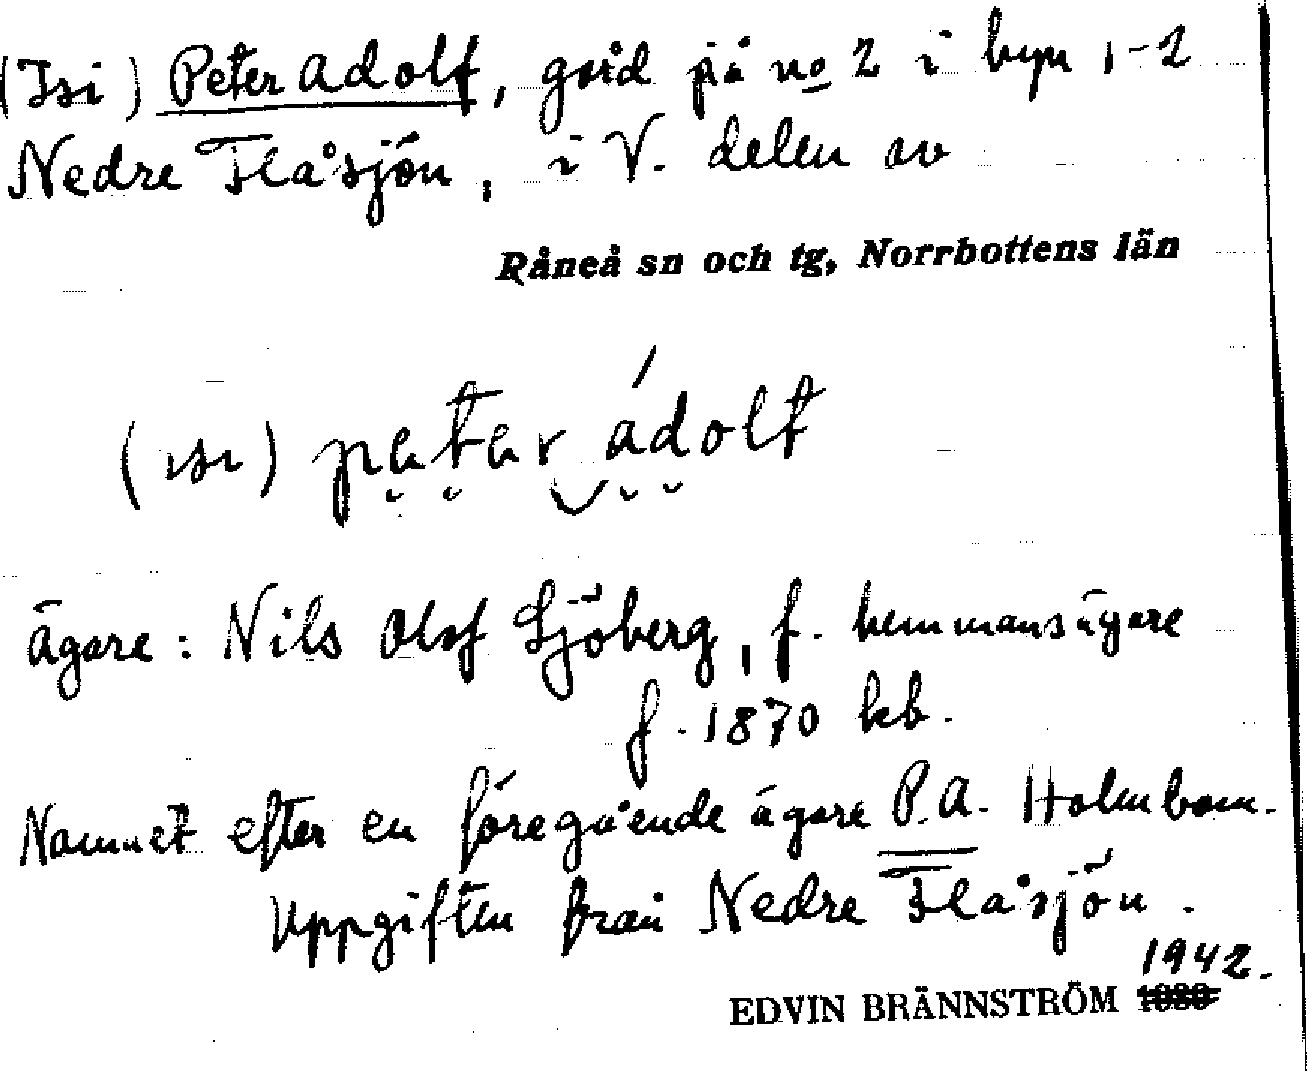 (Isi) Peter Adolf, gård på no 2 i byn 1-2
Nedre Flåsjön, i V. delen av
Råneå sn och tg, Norrbottens län
(ısı) petər ádolf
Ägare: Nils Olof Sjöberg, f. hemmansägare
f. 1870 kb.
Namnet efter en föregående ägare P.A. Holmbom.
Uppgiften från Nedre Flåsjön.
1942.
EDVIN BRÄNNSTRÖM